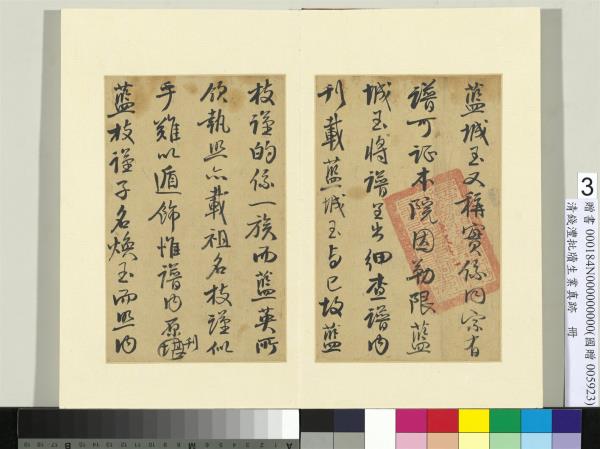 藍城玉又稱實係同宗有
譜可證本院因勒限藍
城玉將譜呈出細查譜內
刊載藍城玉與已故藍
枝謹的係一族而藍英所
領執照亦載祖名枝謹似
乎難以遁飾惟譜內原刊
藍枝謹子名煥玉而照內
3
贈書 000184N000000000(國贈 005923)
清錢灃批牘生業真跡 冊